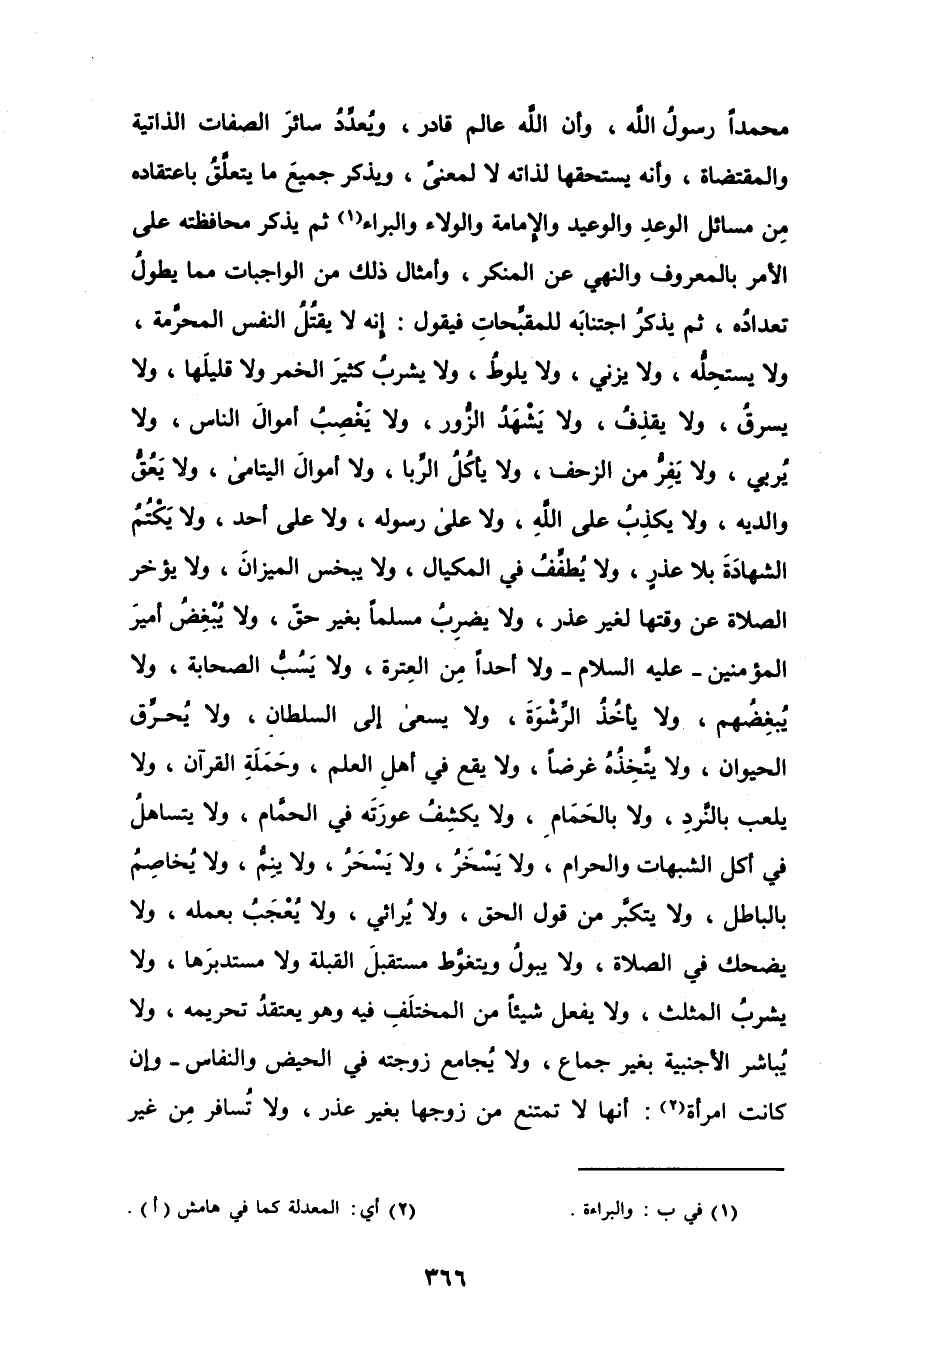 محمداً رسولُ اللَّه ، وأن اللَّه عالم قادر ، ويُعدِّدُ سائرَ الصفات الذاتية
والمقتضاة ، وأنه يستحقها لذاته لا لمعنىً ، ويذكر جميعَ ما يتعلَّقُ باعتقاده
مِن مسائل الوعدِ والوعيد والإمامة والولاء والبراء(١) ثم يذكر محافظته على
الأمر بالمعروف والنهي عن المنكر ، وأمثال ذلك من الواجبات مما يطولُ
تعدادُه ، ثم يذكرُ اجتنابَه للمقبَّحاتِ فيقول : إنه لا يقتُلُ النفس المحرَّمة ،
ولا يستحِلُّه ، ولا يزني ، ولا يلوطُ ، ولا يشربُ كثيرَ الخمر ولا قليلَها ، ولا
يسرقُ ، ولا يقذِفُ ، ولا يَشْهَدُ الزُّور ، ولا يَغْصِبُ أموالَ الناس ، ولا
يُربي ، ولا يَفِرُّ من الزحف ، ولا يأكُلُ الرِّبا ، ولا أموالَ اليتامىٰ ، ولا يَعُقُّ
والديه ، ولا يكذِبُ على اللَّهِ ، ولا علىٰ رسوله ، ولا على أحد ، ولا يَكْتُمُ
الشهادَةَ بلا عذرٍ ، ولا يُطفِّفُ في المكيال ، ولا يبخس الميزانَ ، ولا يؤخر
الصلاة عن وقتها لغير عذر ، ولا يضرِبُ مسلماً بغير حقّ ، ولا يُبْغِضُ أميرَ
المؤمنين ـ عليه السلام ـ ولا أحداً مِن العِترة ، ولا يَسُبُّ الصحابة ، ولا
يُبغِضُهم ، ولا يأخُذُ الرِّشْوَةَ ، ولا يسعىٰ إلى السلطانِ ، ولا يُحرِّق
الحيوان ، ولا يتَّخِذُهُ غرضاً ، ولا يقع في أهلِ العلم ، وحَمَلَةِ القرآن ، ولا
يلعب بالنَّردِ ، ولا بالحَمَامِ ، ولا يكشِفُ عورَتَه في الحمَّام ، ولا يتساهلُ
في أكل الشبهات والحرام ، ولا يَسْخَرُ ، ولا يَسْحَرُ ، ولا ينِمُّ ، ولا يُخاصِمُ
بالباطل ، ولا يتكبَّر من قول الحق ، ولا يُرائي ، ولا يُعْجَبُ بعمله ، ولا
يضحك في الصلاة ، ولا يبولُ ويتغوَّط مستقبلَ القبلة ولا مستدبرَها ، ولا
يشربُ المثلث ، ولا يفعل شيئاً من المختلَفِ فيه وهو يعتقدُ تحريمه ، ولا
يُباشر الأجنبية بغير جماع ، ولا يُجامع زوجته في الحيض والنفاس ـ وإن
كانت امرأة(٢) : أنها لا تمتنع من زوجها بغير عذر ، ولا تُسافر مِن غير
(١) في ب : والبراءة .
(٢) أي : المعدلة كما في هامش (أ) .
٣٦٦